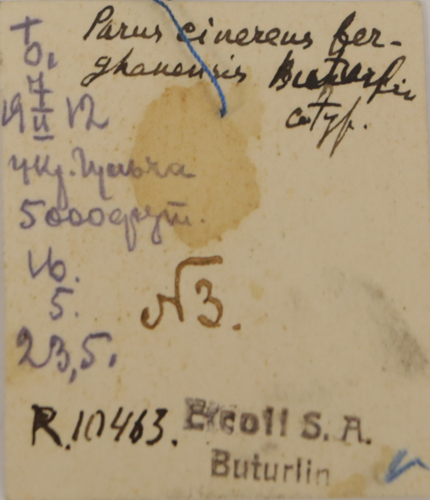 Parus cinereus fer-
ghanensis Buturlin
cotyp.
♀.
7
19 II 12
укр. Гульча
5000 фут.
16.
5.
23,5.
№3.
R.10463.
E coll S. A.
Buturlin